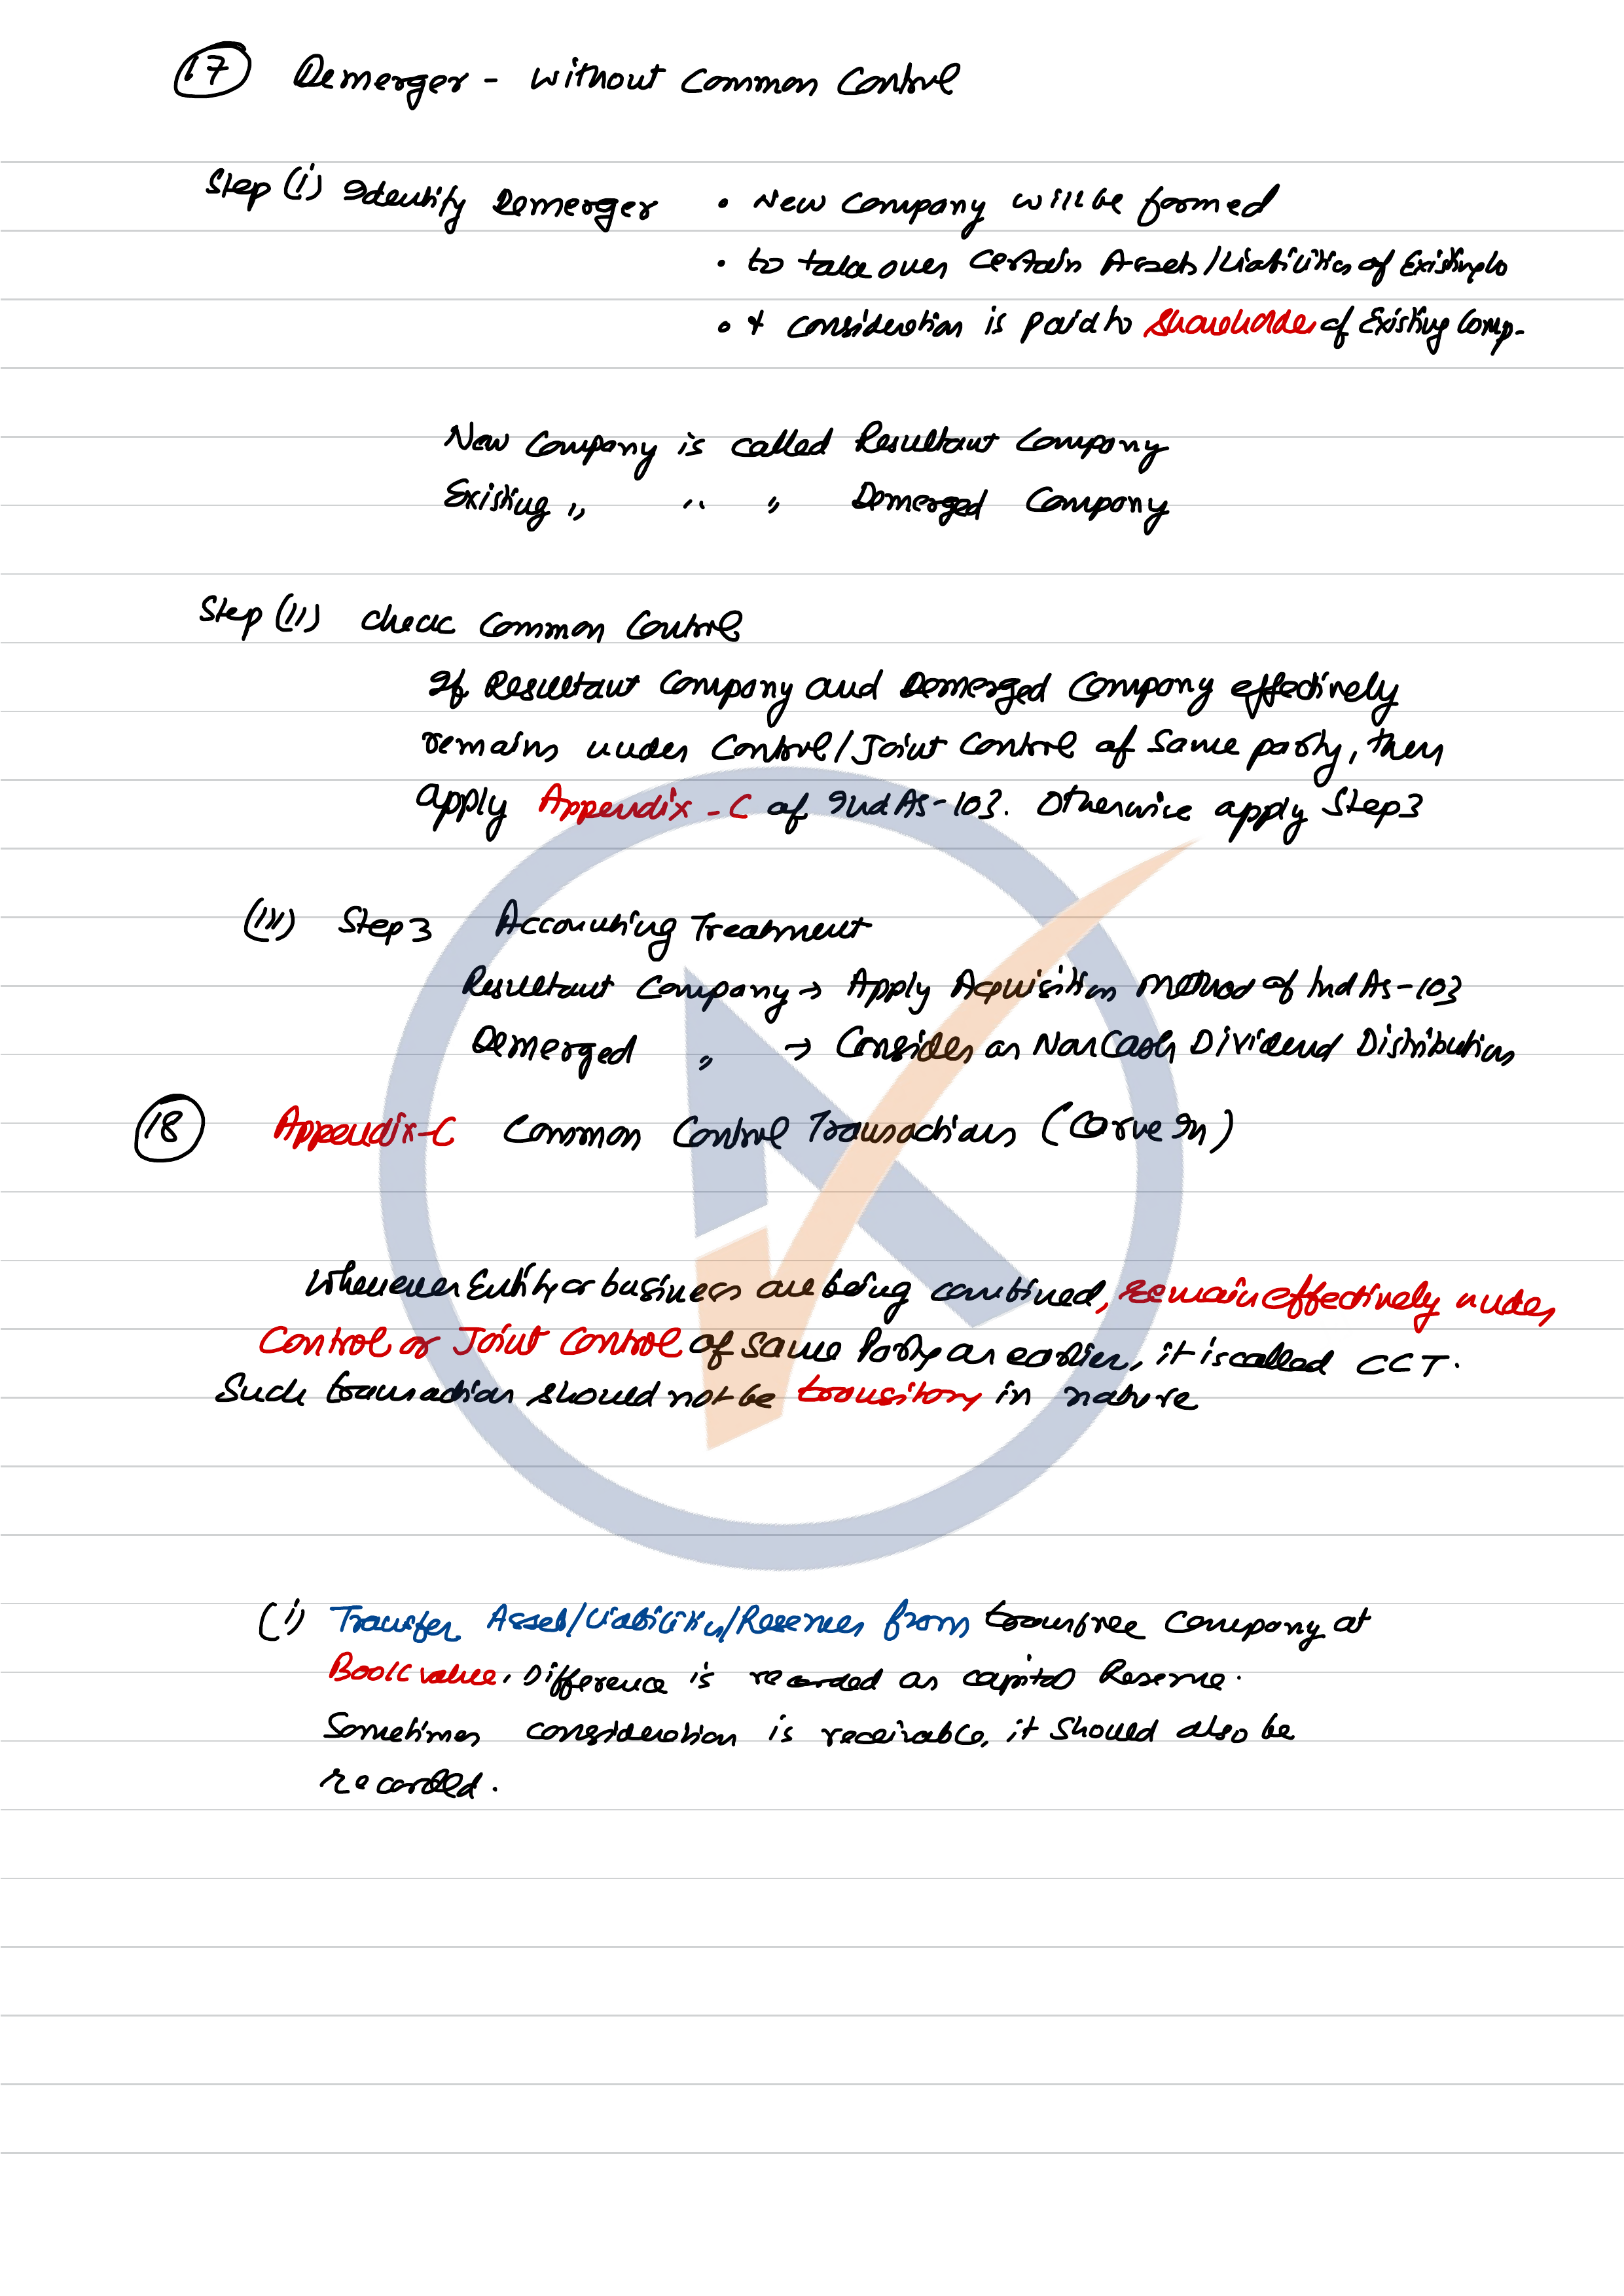 17 Demerger - Without Common Control
Step (i) Identify Demerger • New Company will be formed
• to take over Certain Assets/Liabilities of Existing Co
• + consideration is paid to Shareholder of Existing Comp.
New Company is called Resultant Company
Existing ,, ,, ,, Demerged Company
Step (II) Check Common Control
If Resultant Company and Demerged Company effectively
remains under Control/Joint Control of Same party, then
apply Appendix-C of Ind As-103. Otherwise apply Step3
(III) Step 3 Accounting Treatment
Resultant Company → Apply Acquisition Method of Ind As-103
Demerged ,, → Consider as Non Cash Dividend Distribution
18 Appendix-C Common Control Transactions (Carve In)
Whenever Entity or business are being combined, remain effectively under
Control or Joint Control of Same Party as earlier, it is called CCT.
Such transaction should not be transitory in nature
(i) Transfer Asset/Liability/Reserves from transfree Company at
Book value. Difference is recorded as capital Reserve.
Sometimes consideration is receivable, it should also be
recorded.